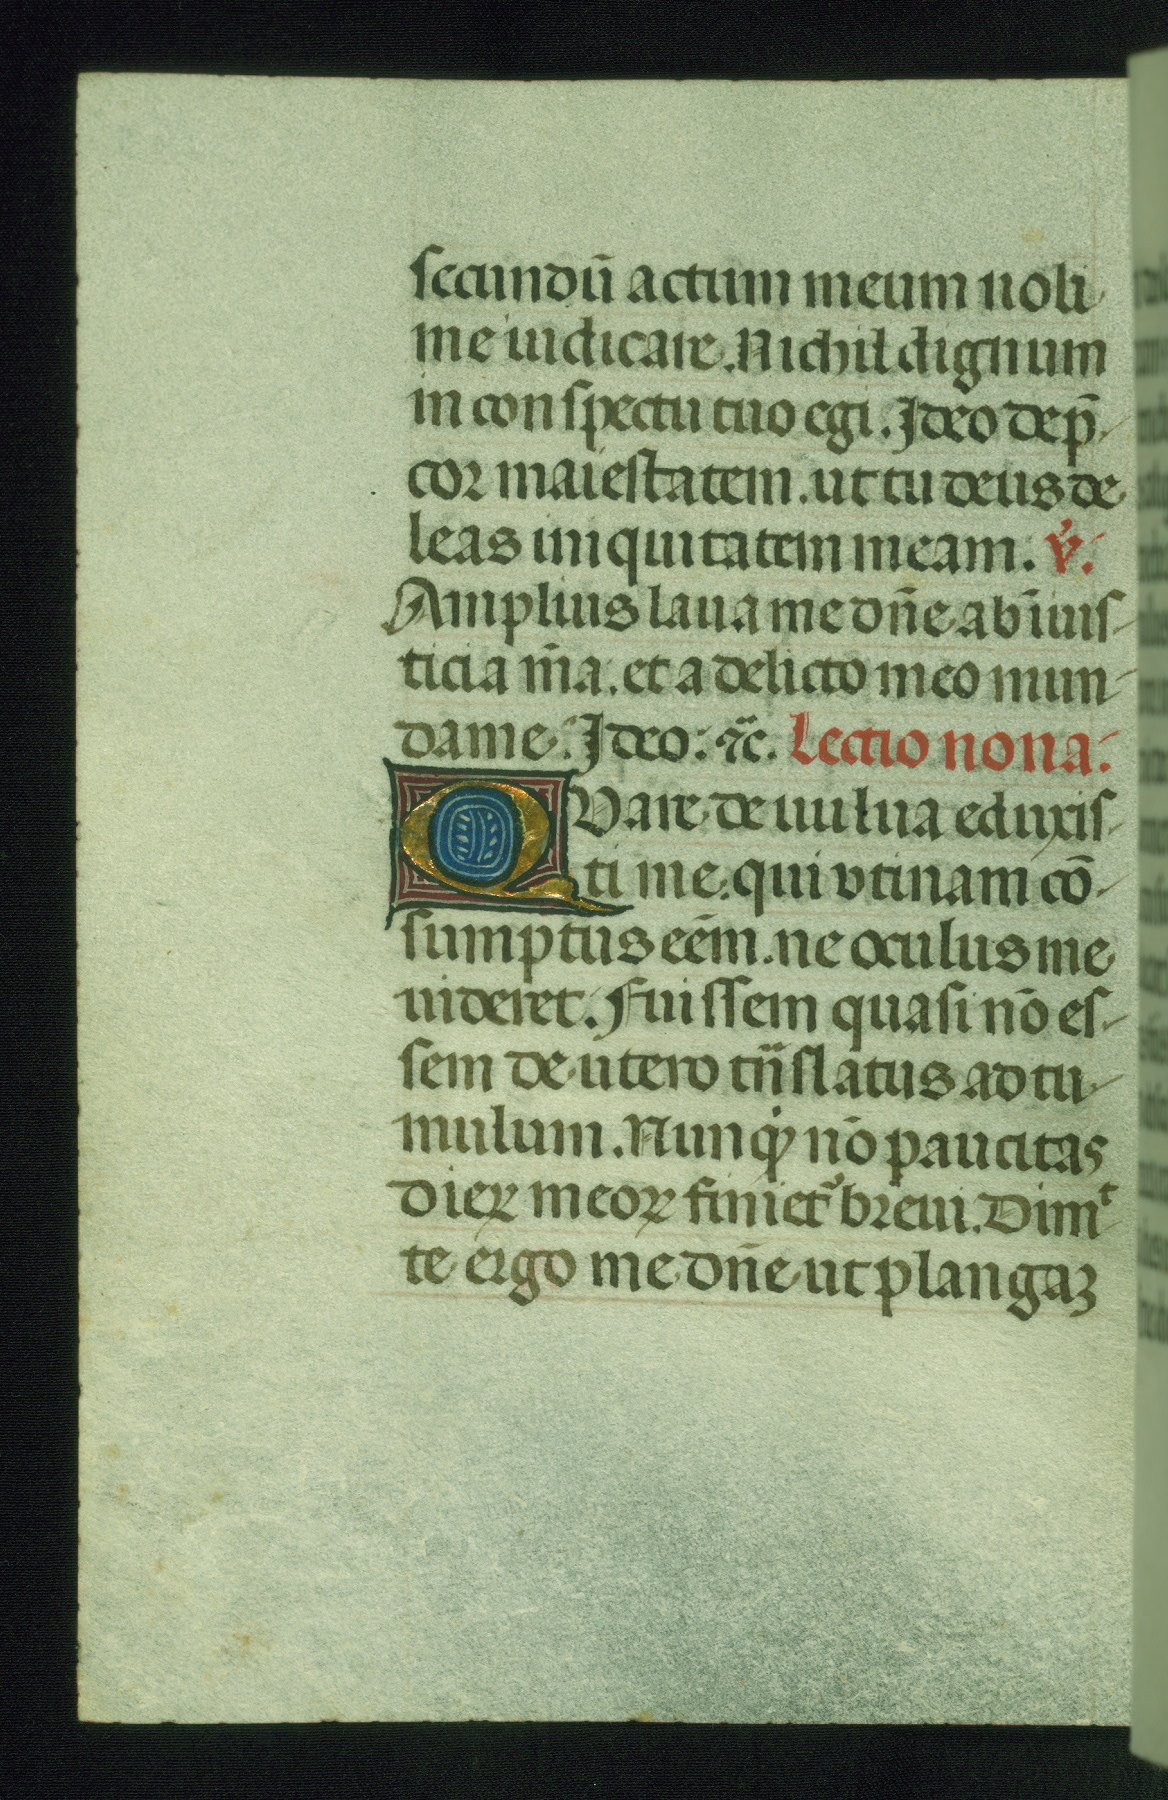 secundū actum meum noli
me iudicare. Nichil dignum
in conspectu tuo egi. Ideo dep̄
cor maiestatem. ut tu deus de
leas iniquitatem meam. v̓.
Amplius laua me dn̄e ab īiuis-
ticia m̄a. et a delicto meo mun-
da me. Ideo. ⁊c̄. Lectio nona.
QVare de uulua eduxis-
ti me. qui vtinam cō-
sumptus eēm. ne oculus me
uideret. Fuissem quasi nō es-
sem de utero trāslatus ad tu-
mulum. Nunq̇ nō paucitas
dieꝝ meoꝝ finiet᷑ breui. Dimᵗ
te ergo me dn̄e ut plangaʒ